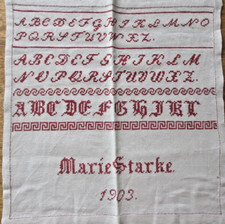 ABCDEFGHIJKLMNO
PQRSTUVWXYZ.
ABCDEFGHIJKLM
NOPQRSTUVWXYZ.
ABCDEFGHIJKL
Marie Starke.
1903.